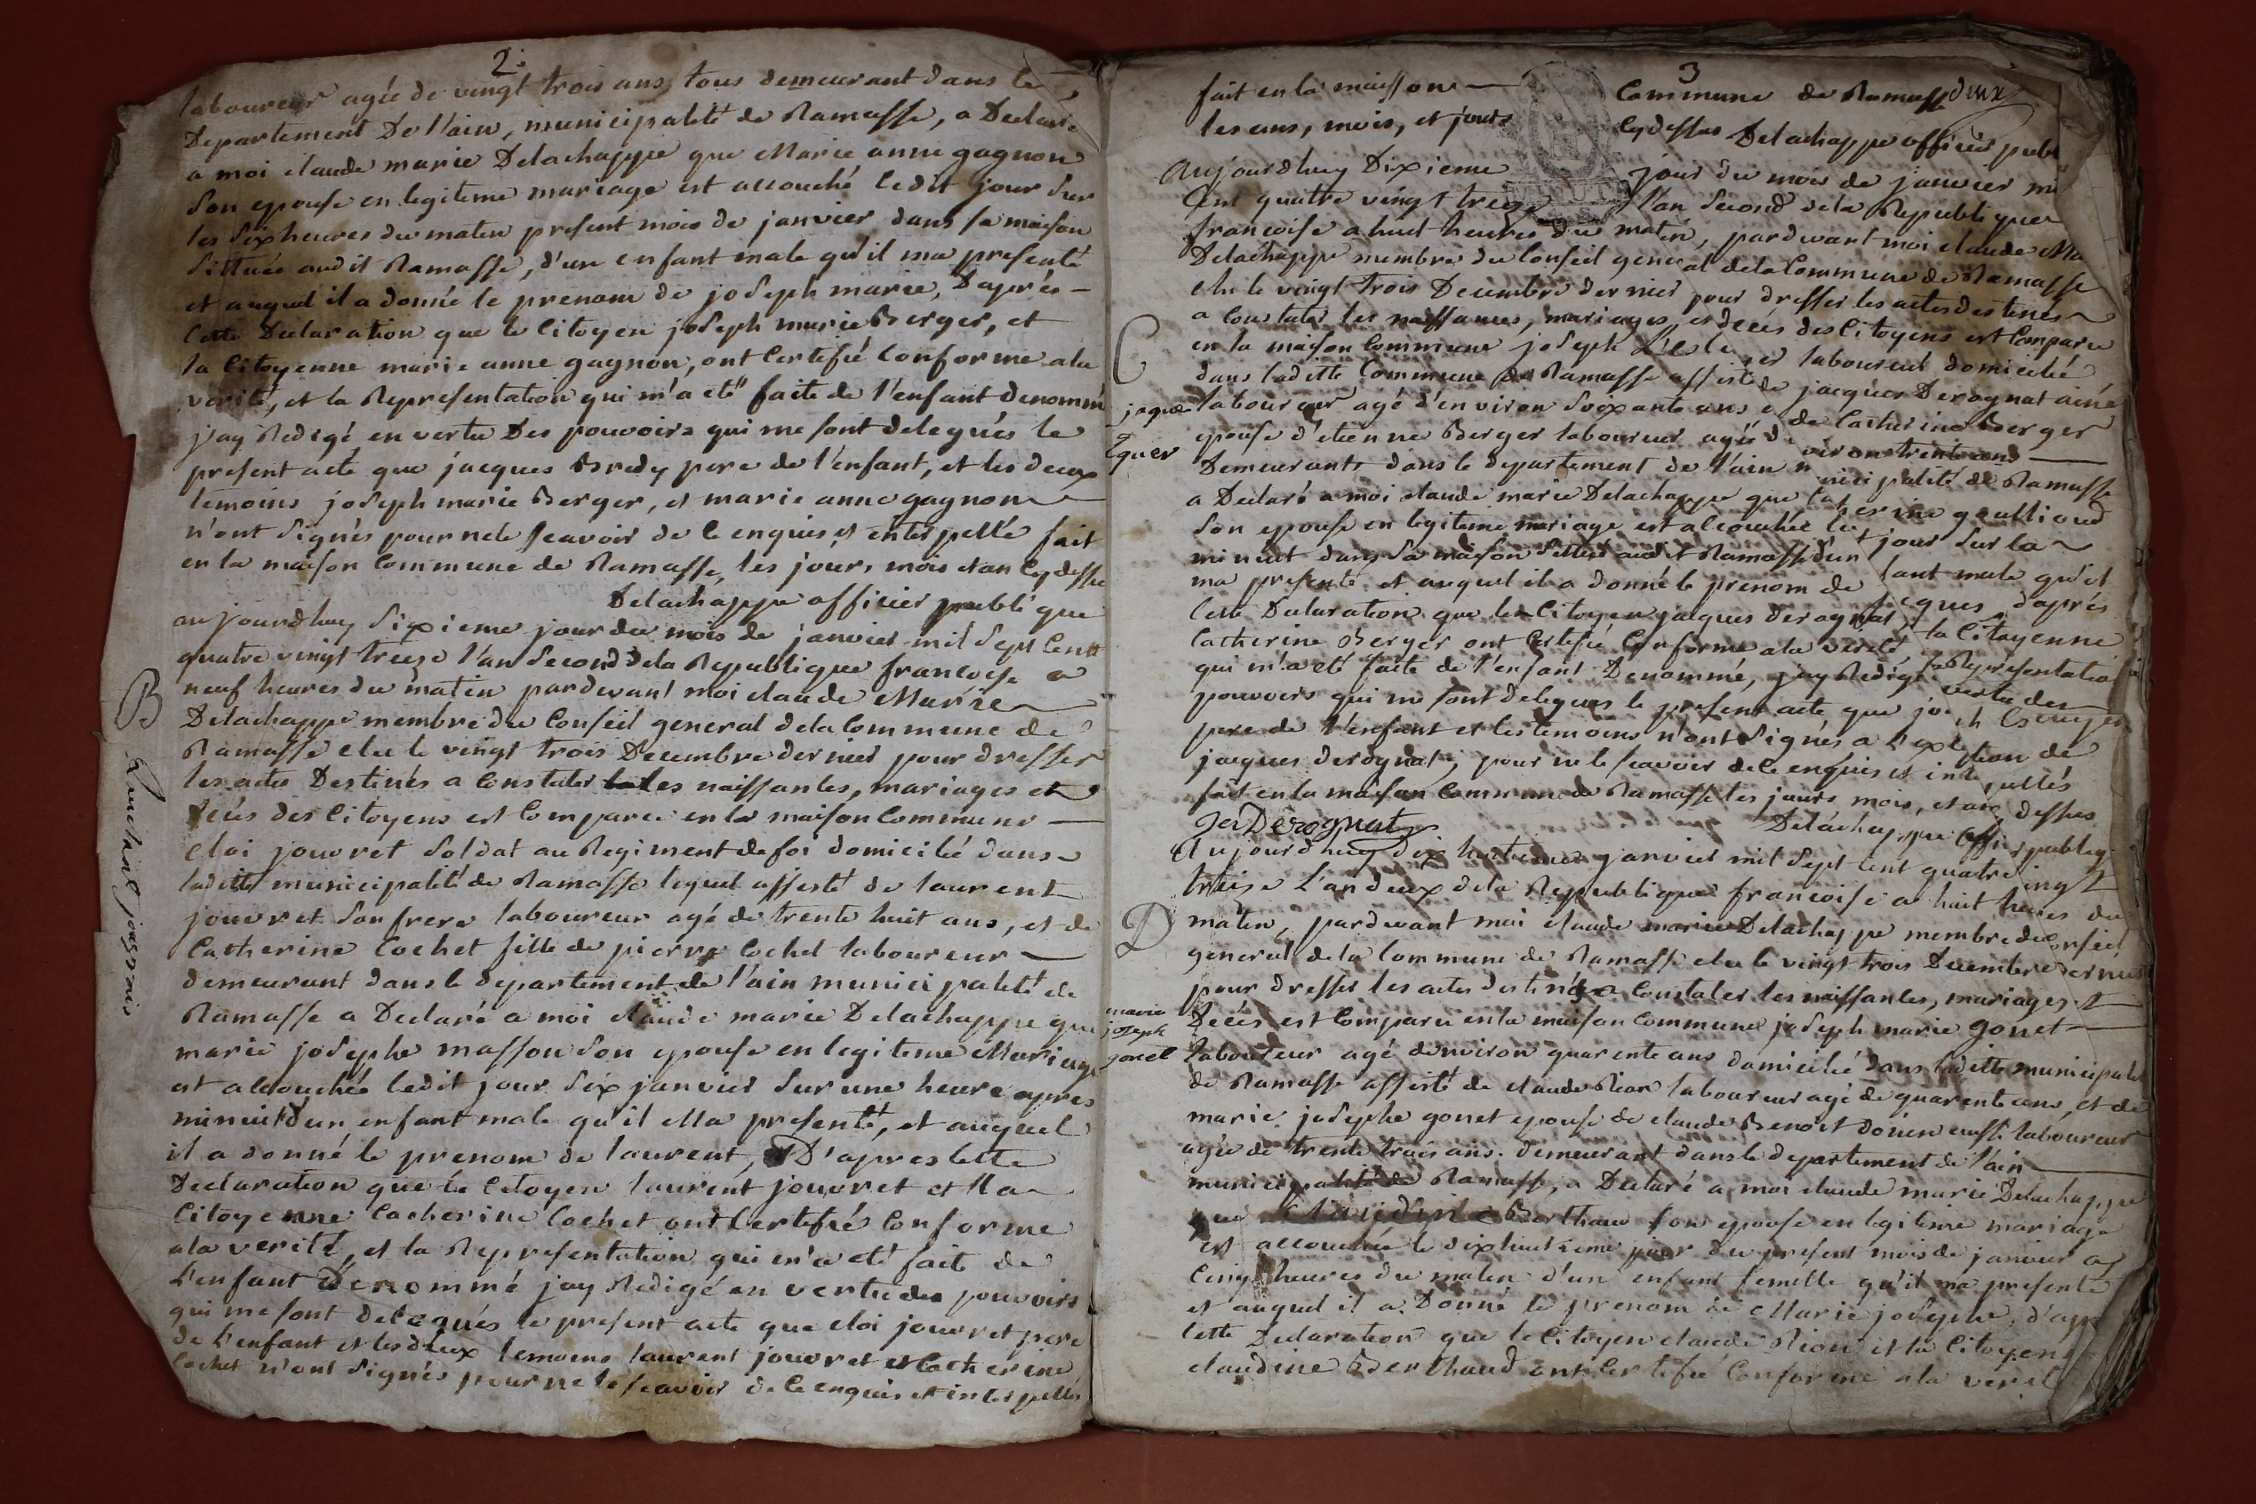 2.
laboureur agée de vingt trois ans, tous demeurant dans le
Departement De l'ain, municipalité de Ramasse, a Declaré
a moi claude marie Delachappe que Marie anne gagnon
Son epouse en legiteme mariage est accouché ledit jour Sur
les Six heures du maten present mois de janvier dans sa maison
Sittuée audit Ramasse, d'un enfant male qu'il ma presenté
et auquel il a donné le prenom de joseph marie, D'après
Cette Declaration que le Citoyen joseph marie Berger, et
la Citoyenne marie anne gagnon, ont Certifié Conforme ala
verité, et la Representation qui m'a eté faite de l'enfant Denommé
j'ay Redigé en vertu Des pouvoirs qui me sont delegués le
present acte que jacques Bredy pere de l'enfant, et les deux
temoins joseph marie Berger, et marie anne gagnon
n'ont Signés pour ne le sçavoir de ce enquis et enterpellé fait
en la maison Commune de Ramasse, les jours, mois et an Cy dessu
Delachappe officier publique
aujourdhuy Sixieme jour du mois de janvier mil Sept Cent
quatre vingt treize l'an Second dela Republique francoise a
neuf heures du matin pardevant moi claude Marie
Delachappe membre du Conseil general dela Commune de
Ramasse elu le vingt trois Decembre dernier pour dresser
les actes Destinés a Constater les naissantes, mariages et
Decés des Citoyens est Comparu en la maison Commune
cloi jouvret Soldat au Regiment de foi domicilié dans
ladette municipalité de Ramasse lequel assesté de laurent
jouvret Son frere laboureur agé de trente huit ans, et de
Catherine Cochet fille de pierre Cochet laboureur
demeurant dans le departement de l'ain municipalité de
Ramasse a Declaré a moi claude marie Delachappe que
marie josephe masson Son epouse en legiteme Mariage
est alcouchée ledit jour Six janvier Sur une heure apres
minuit d'un enfant male qu'il Ma presenté, et auquel
il a donné le prenom de laurent, D'apres cette
Declaration que le Citoyen laurent jouvret et la
Citoyenne Catherine Cochet ont Certifié Conforme
ala verité, et la Representation qui m'a eté fait de
l'enfant Denommé jay Redigé en vertu des pouvoirs
qui me sont delegués le present acte que cloi jouvret pere
de l'enfant et les deux temoins laurent jouvret et Catherine
Cochet n'ont Signés pour ne le sçavoir de ce enquis et interpellés
B
3
fait en la maison Commune de Ramasse
les ans, mois, et jours Cydessus Delachappe officier publi
Aujourdhuy Dixieme jour du mois de janvier mi
Cent quatre vingt treize l'an Second dela Republique
francoise a huit heures du matin, pardevant moi claude Ma
Delachappe membre du Conseil general dela Commune de Ramasse
elu le vingt trois Decembre dernier pour dresser les actes destinés
a Constater les naissances, mariages, et decés des Citoyens est Comparu
en la maison Commune joseph laboureur domicilié
dans ladette Commune de Ramasse assisté de jacques Derognat ainé
laboureur agé d'environ Soixante ans et de Catherine Berger
epouse d'etienne Berger laboureur agée d'environ trente ans
Demeurants dans le departement de l'ain municipalité de Ramasse
a Declaré a moi claude marie Delachappe que Catherine goullioud
Son epouse en legiteme mariage est alcouchée jour Sur la
minuit dans Sa maison audit Ramasse d'un enfant male qu'il
ma presenté et auquel il a donné le prenom de jacques d'après
Cette Declaration que le Citoyen jacques Derognat, la Citoyenne
Catherine Berger ont Certifié Conforme ala verité la Représentation
qui m'a eté faite de l'enfant Denommé, j'ay Redigé vertu des
pouvoirs qui me sont delegués le present acte, que
pere de l'enfant et les temoins n'ont Signés a l'exception de
jacques derognat, pour ne le sçavoir de ce enquis et interpellés
fait en la maison Commune de Ramasse les jours, mois, et an dessus
Derognat Delachappe officier publiq
Aujourdhuy Dix huitieme janvier mil Sept Cent quatre vingt
treize L'an deux dela Republique francoise a huit heures du
maten, pardevant moi claude marie Delachappe membre du Conseil
general dela Commune de Ramasse elu le vingt trois Decembre dernier
pour dresser les actes destinés a Constater les naissantes, mariages, et
Decés est Comparu en la maison Commune joseph marie gonet
laboureur agé denviron quarente ans domicilié dans ladette municipale
de Ramasse assesté de claude Rion laboureur agé de quarente ans, et de
marie josephe gonet epouse de claude Benoit laboureur
agée de trente trois ans. demeurant dans le departement de l'ain
municipalité de Ramasse, a Declaré a moi claude marie Delachappe
que Claudine Berthaud Son epouse en legiteme mariage
est accouchée le dixhuitieme jour du present mois de janvier a
Cinq heures du maten d'un enfant femelle qu'il ma presenté
et auquel il a Donné le prenom de Marie josephe, d'apr
Cette Declaration que le Citoyen claude Rion et la Citoyen
claudine Berthaud ont Certifié Conforme ala verit
C
jaque
D
marie
joseph
gonet